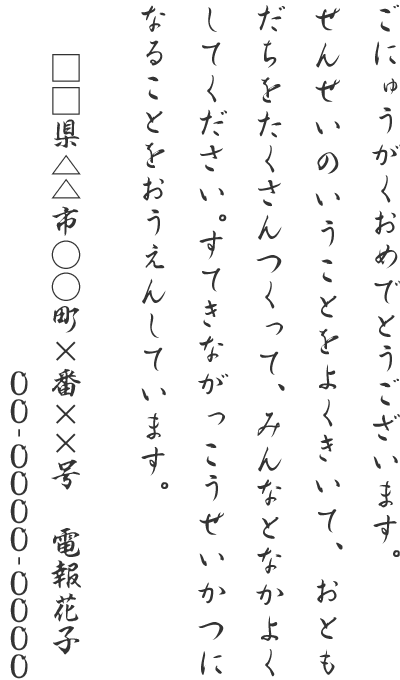 ごにゅうがくおめでとうございます。
せんせいのいうことをよくきいて、おとも
だちをたくさんつくって、みんなとなかよく
してください。すてきながっこうせいかつに
なることをおうえんしています。
□□県△△市○○町×番××号　電報花子
00-0000-0000